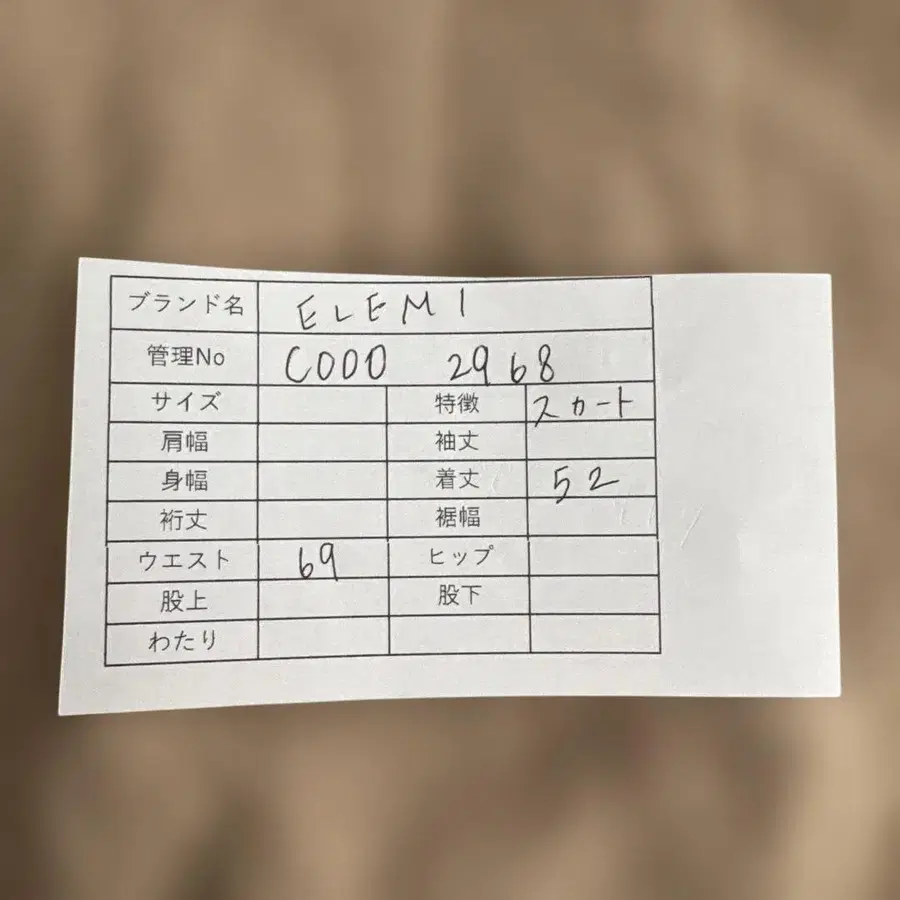 ブランド名 ELEMI
管理No C000 2968
サイズ 特徴 スカート
肩幅 袖丈
身幅 着丈 52
裄丈 裾幅
ウエスト 69 ヒップ
股上 股下
わたり